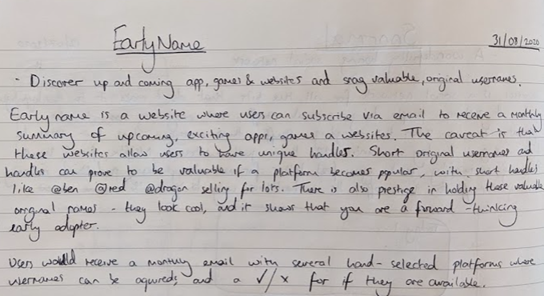 EarlyName
31/08/2020
· Discover up and coming app, games & websites and snag valuable, original usernames.
Early name is a website where users can subscribe via email to receive a monthly
summary of upcoming, exciting apps, games & websites. The caveat is that
these websites allow users to have unique handles. Short original usernames and
handles can prove to be valuable if a platform becomes popular, with short handles
like @ben @red @dragon selling for lots. There is also prestige in holding these valuable
original names - they look cool, and it shows that you are a forward-thinking
early adopter.
Users would receive a monthly email with several hand-selected platforms where
usernames can be aquired, and a ✓/× for if they are available.